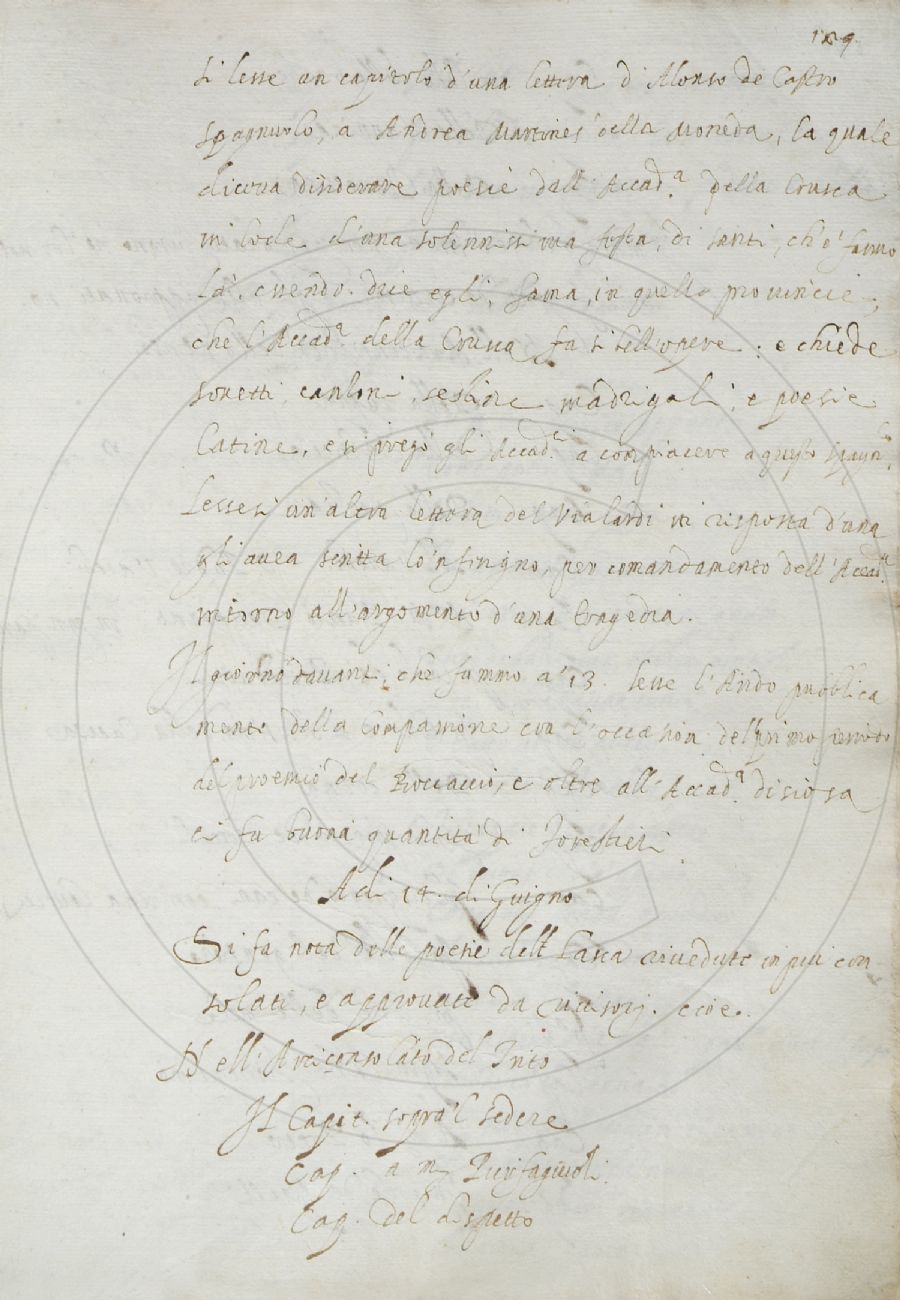 189.
si lesse un capitolo d'una lettera d'Alonso de Castro
spagnuolo, a Andrea Martines della Moneda, la quale
diceva disiderare poesie dall'Accad.ª della Crusca
in lode d'una solennissima festa, di santi, ch'e' fanno
là. essendo. dice egli, fama, in quelle provincie,
che l'Accad.ª della Crusca fa sì bell'opere: e chiede
sonetti, canzoni, sestine madrigali, e poesie
latine, e si pregò gli Accad.ⁱ a compiacere a questo spagn.º
Lessesi un'altra lettera del Vialardi in risposta d'una
gli avea scritta lo 'nferigno, per comandamento dell'Accad.ª
intorno all'argomento d'una tragedia.
Il giorno davanti, che fummo a' 13. lesse l'Arido pubblica
mente della Compassione con l'occasion del primo
del proemio del Boccaccio, e oltre all'Accad.ª
ci fu buona quantità di forestieri.
A dì 14. di Giugno
Si fa nota delle poesie dell Lasca rivedute in più con
solati, e approvate da rivisorj. cioè.
Nell'Arciconsolato del Trito
Il Capit. sopra'l sedere
Cap. a m
Cap. del dispetto